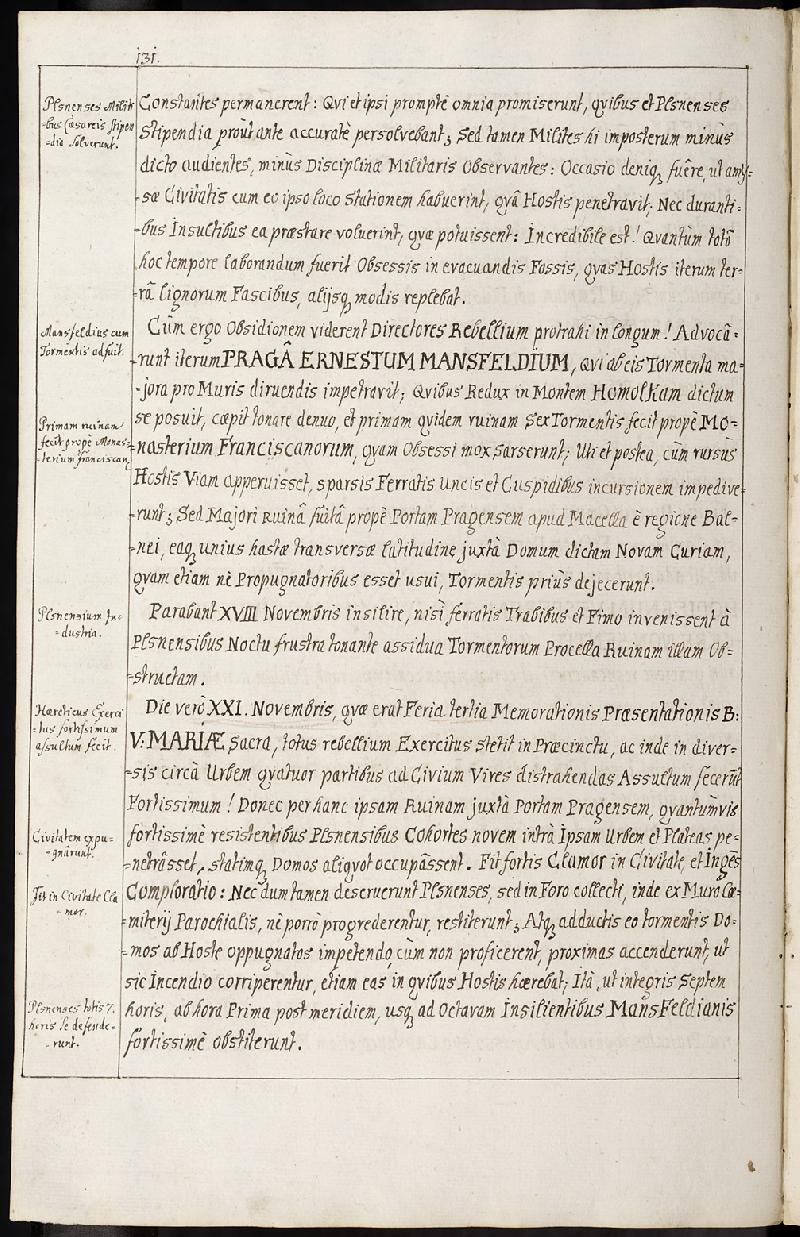 131.
Plsnenses Militi-
-bus Caesareis stipen-
-dia solverunt.
Constantes permanerent: Qvi et ipsi promptè omnia promiserunt, qvibus et Plsnenses
Stipendia proùt ante accuratè persolvebant; Sed tamen Milites hi imposterum minùs
dicto audientes, minùs Disciplinæ Militaris Observantes: Occasio deniq, fuêre, ut amis-
-sæ Civitatis cum eo ipso loco Stationem habuerint, qvâ Hostis penetravit; Nec duranti-
-bus Insultibus ea præstare voluerint, qvæ potuissent: Incredibile est! Qvantùm totô
hoc tempore laborandum fuerit Obsessis in evacuandis Fossis, qvas Hostis iterum ter-
-râ lignorum Fascibus, alijsq, modis replebat.
Mansfeldius cum
Tormentis adfuit.
Cùm ergo Obsidionem viderent Directores Rebellium protrahi in longum! Advocâ-
-runt iterum PRAGÂ ERNESTUM MANSFELDIUM, qvi ab eis Tormenta ma-
-jora pro Muris diruendis impetravit; Qvibus Redux in Montem Homolkam dictum
se posuit, cæpit tonare denuo, et primam qvidem ruinam Sex Tormentis fecit propè Mo-
Primam ruinam
fecit propè Monas-
-terium Franciscan.
-nasterium Franciscanorum, qvam Obsessi mox sarserunt; Uti et postea, cùm rursùs
Hostis Viam apperuisset, sparsis Ferratis Uncis et Cuspidibus incursionem impedive-
-runt; Sed Majori Ruinâ factâ propè Portam Pragensem apud Macella è regione Bal-
-nei, eaq, unius hastæ transversæ latitudine juxtà Domum dictam Novam Curiam,
qvam etiam nè Propugnatoribus esset usui, Tormentis priùs dejecerunt.
Plsnensium In-
-dustria.
Parabant XVIII Novembris insilire, nisi ferratis Trabibus et Fimo invenissent à
Plsnensibus Noctu frustra tonante assidua Tormentorum Procella Ruinam illam Ob-
-structam.
Hæreticus Exerci-
-tus fortissimum
assultum fecit.
Die verò XXI. Novembris, qvæ erat Feria tertia Memorationis Præsentationis B:
V: MARIÆ Sacra, totus rebellium Exercitus stetit in Præcinctu, ac inde in diver-
-sis circà Urbem qvatuor partibus ad Civium Vires distrahendas Assultum fecerunt
Fortissimum! Donec per hanc ipsam Ruinam juxtà Portam Pragensem, qvantumvis
Civitatem expu-
-gnârunt.
fortissimè resistentibus Plsnensibus Cohortes novem intrà Ipsam Urbem et Plateas pe-
-netrâsset, statimq, Domos aliqvot occupâssent. Fit fortis Clamor in Civitate, et Ingẽs
Fit in Civitate Cla-
-mor.
Comploratio: Nec dum tamen deseruerunt Plsnenses, sed in Foro collecti, inde ex Muro Cæ-
-miterij Parochialis, nè porrò progrederentur, restiterunt; Atq, adductis eo tormentis Do-
-mos ab Hoste oppugnatas impetendo, cùm non proficerent, proximas accenderunt, ut
sic Incendio corriperentur, etiam eas in qvibus Hostis hærebat; Ità, ut integris Septem
Plsnenses totis 7.
horis se defende-
-runt.
horis, ab hora Prima post meridiem, usq, ad Octavam Insilientibus MansFeldianis
fortissimè obstiterunt.